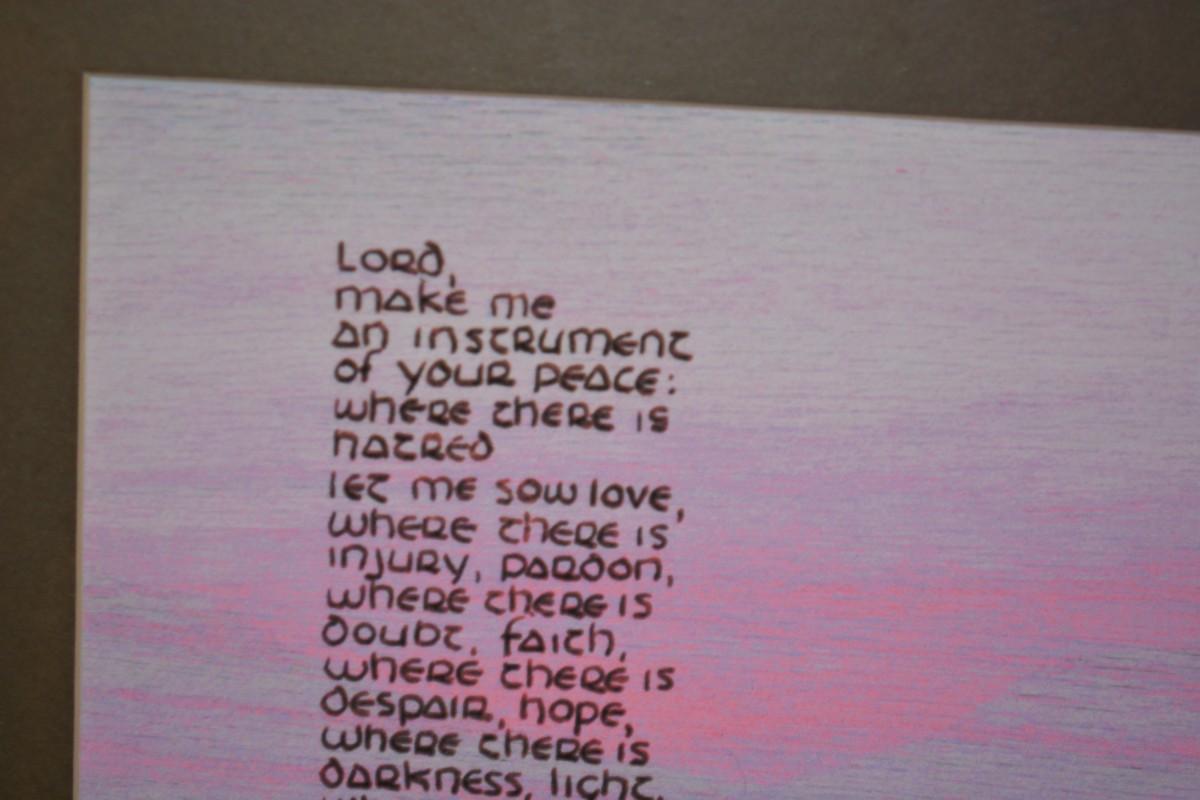 Lord,
make me
an instrument
of your peace:
where there is
hatred
let me sow love,
where there is
injury, pardon,
where there is
doubt, faith,
where there is
despair, hope,
where there is
darkness, light,